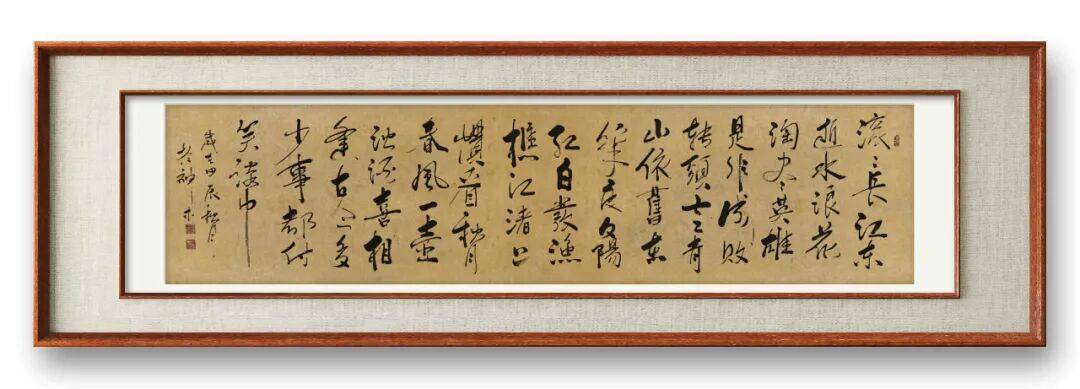 滚〻長江东
逝水浪花
淘尽英雄
是非成败
转頭空青
山依舊在
幾度夕陽
红白發漁
樵江渚上
惯看秋月
春風一壶
浊酒喜相
逢古今多
少事都付
笑谈中
歲在甲辰秋月